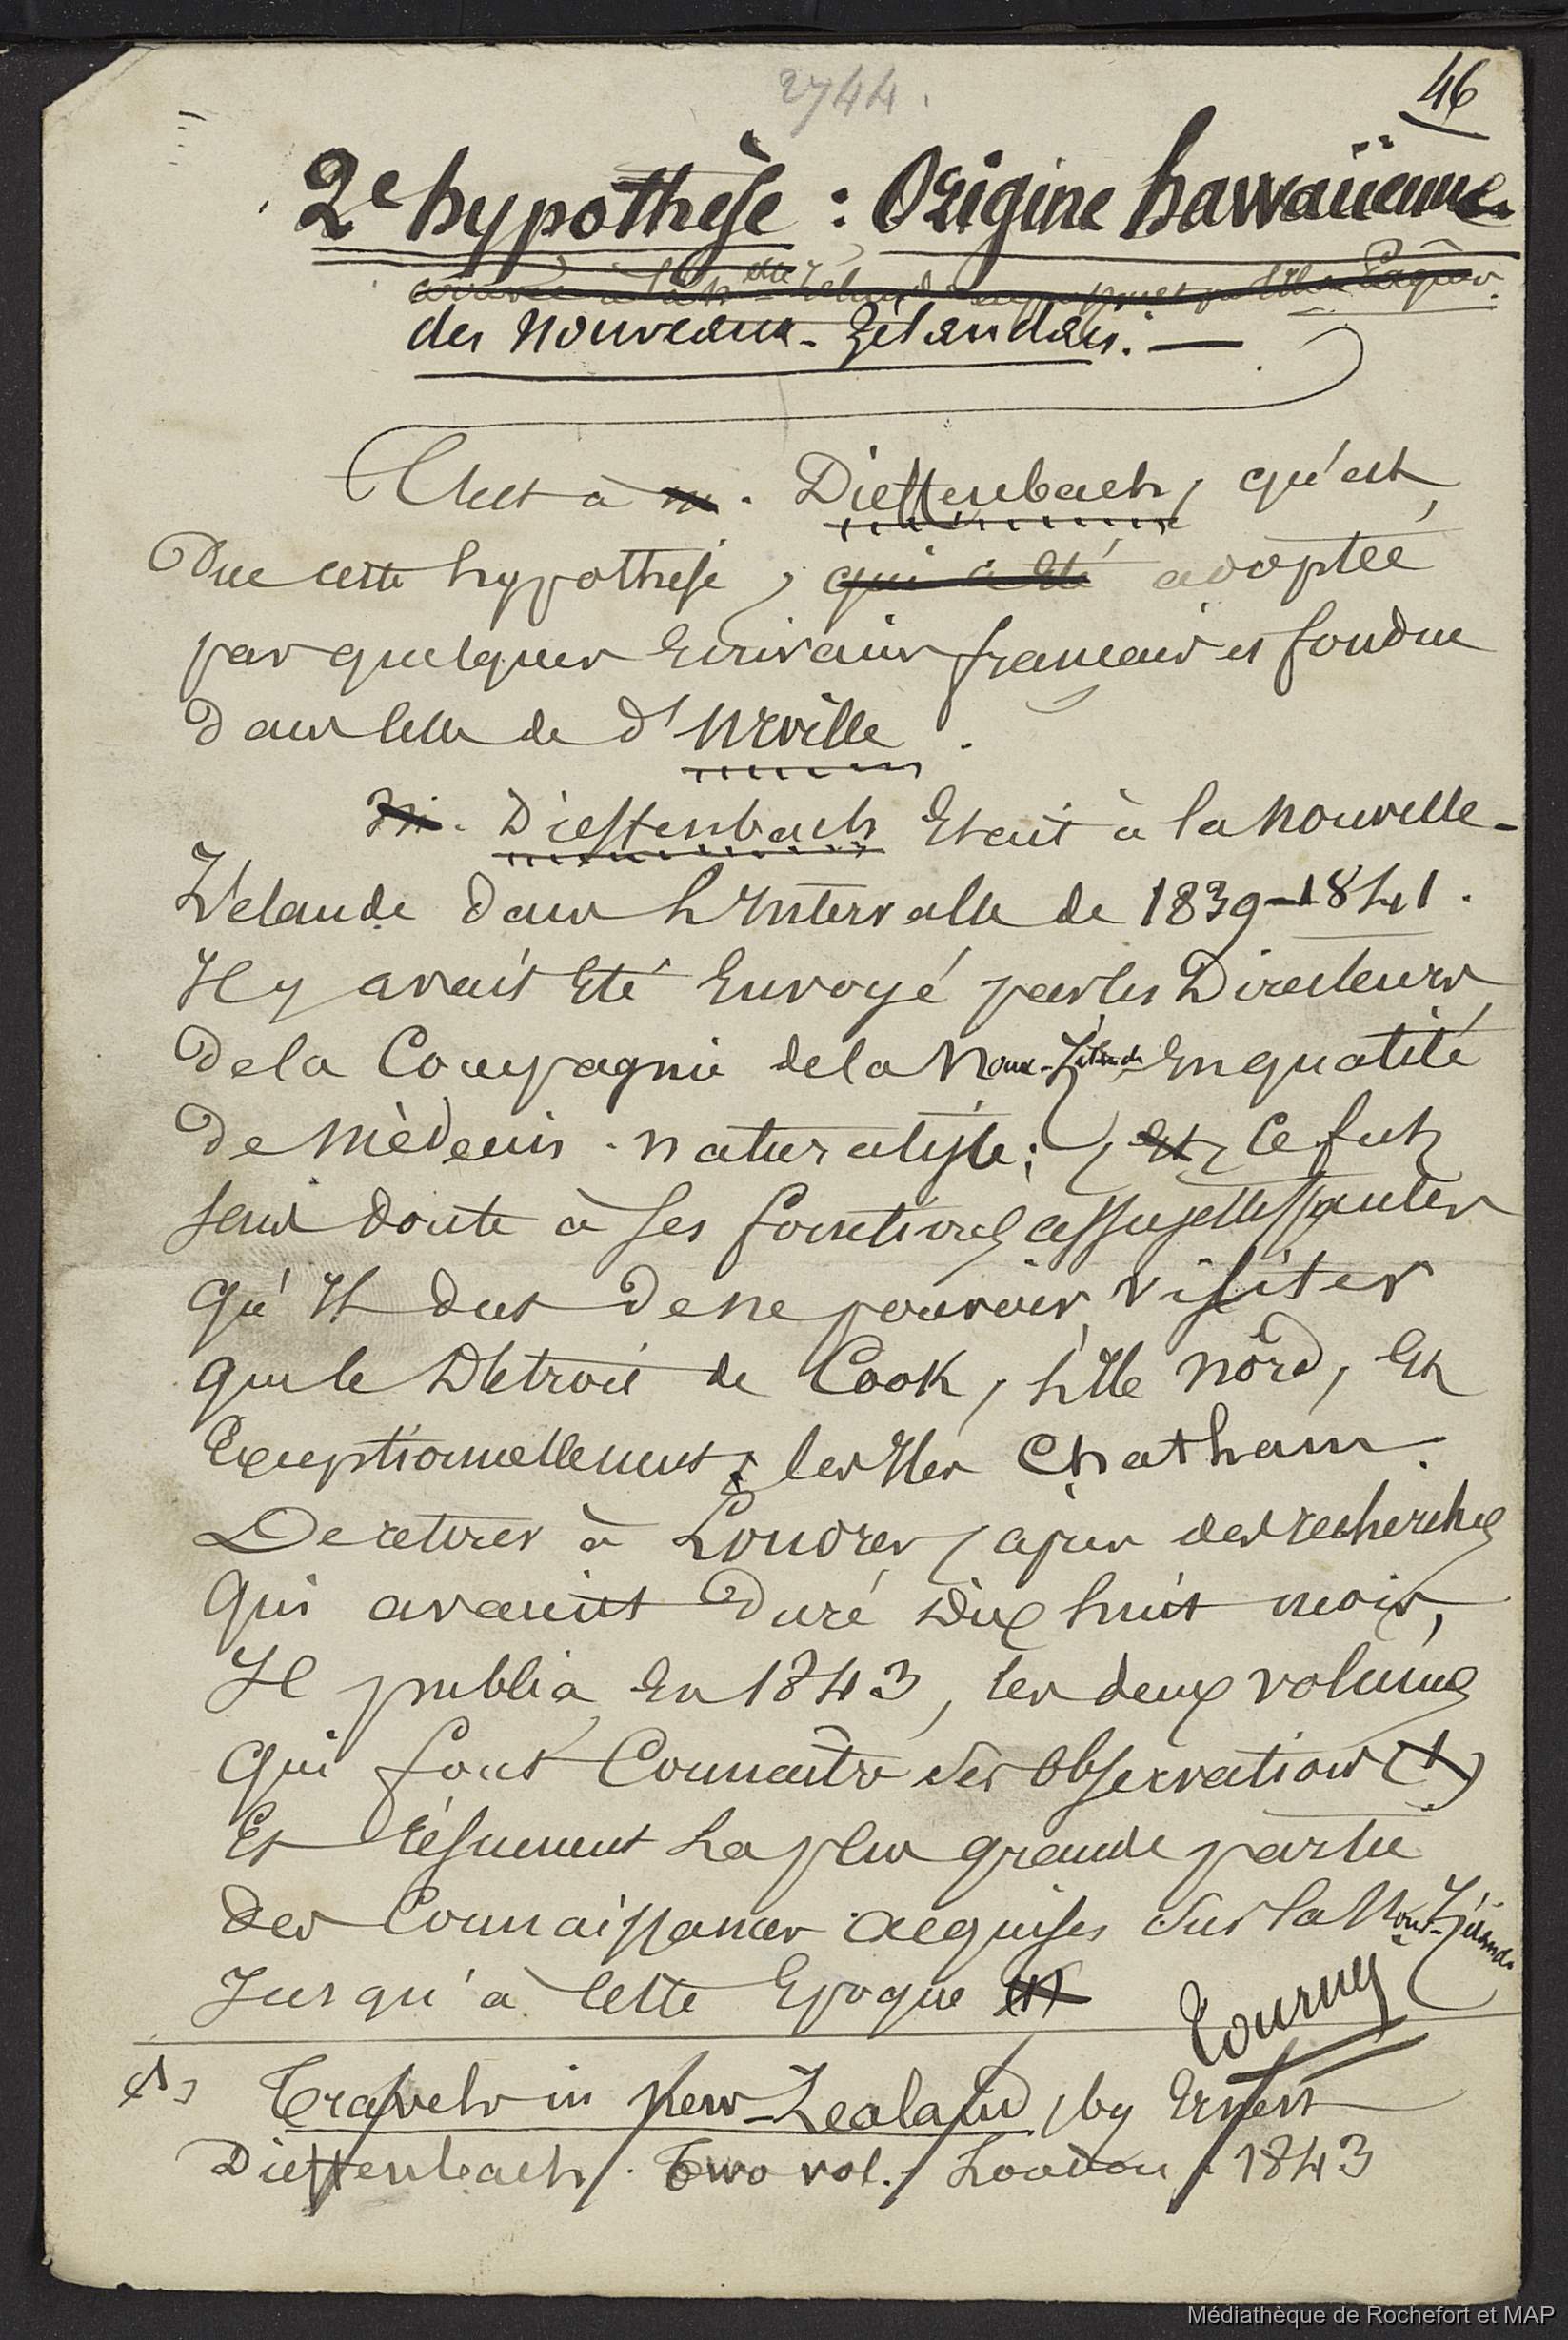 2744.
46
2e hypothèse : Origine hawaiienne
des Nouveaux-Zélandais. —
C'est à M. Dieffenbach, qu'est
due cette hypothèse, qui a été adoptée
par quelques Ecrivains français et fondue
dans celle de d'Urville.
M. Dieffenbach Etait à la Nouvelle-
Zélande dans L'Intervalle de 1839-1841.
Il y avait Eté Envoyé par les Directeurs
de la Compagnie de la Nouv-Zélande En qualité
de Médecin-naturaliste; et Ce fut
sans doute à ses fonctions assujettissantes
qu'Il dut de ne pouvoir visiter
que le Détroit de Cook, L'Ile Nord, Et
Exceptionnellement, les Iles Chatham.
De retour à Londres, après des recherches
qui avaient duré dix huit mois,
Il publia, En 1843, les deux volumes
qui font Connaître ses observations (1)
Et résument La plus grande partie
des Connaissances acquises sur la Nouv-Zélande
Jusqu'à Cette Epoque (1)
tourny
(1) Travels in New-Zealand, by Ernest
Dieffenbach. Two vol. London. 1843
Médiathèque de Rochefort et MAP